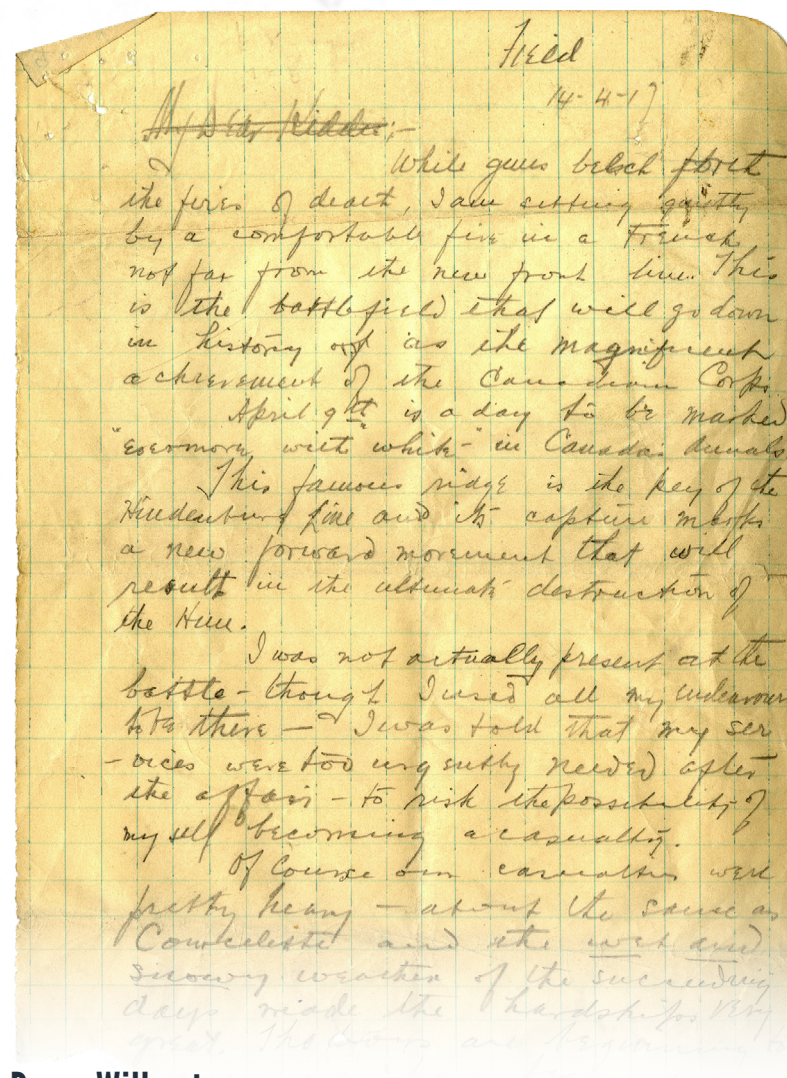 Field
14-4-17
My Dear Kiddie:-
While guns belch forth
the fires of death, I am sitting quietly
by a comfortable fire in a French
not far from the new front line. This
is the battlefield that will go down
in history as the magnificent
achievement of the Canadian Corps
April 9th is a day to be marked
"evermore with "white-" in Canada's Annals
This famous ridge is the key of the
Hindenburg Line and its capture marks
a new forward movement that will
result in the ultimate destruction of
the Hun.
I was not actually present at the
battle - though I used all my endeavour
to be there - I was told that my ser
-vices were too urgently needed after
the affair - to risk the possibility of
myself becoming a casualty.
Of course our casualties were
pretty heavy - about the same as
Courcelette and the wet and
snowy weather of the succeeding
days made the hardships very
great. The are beginning to